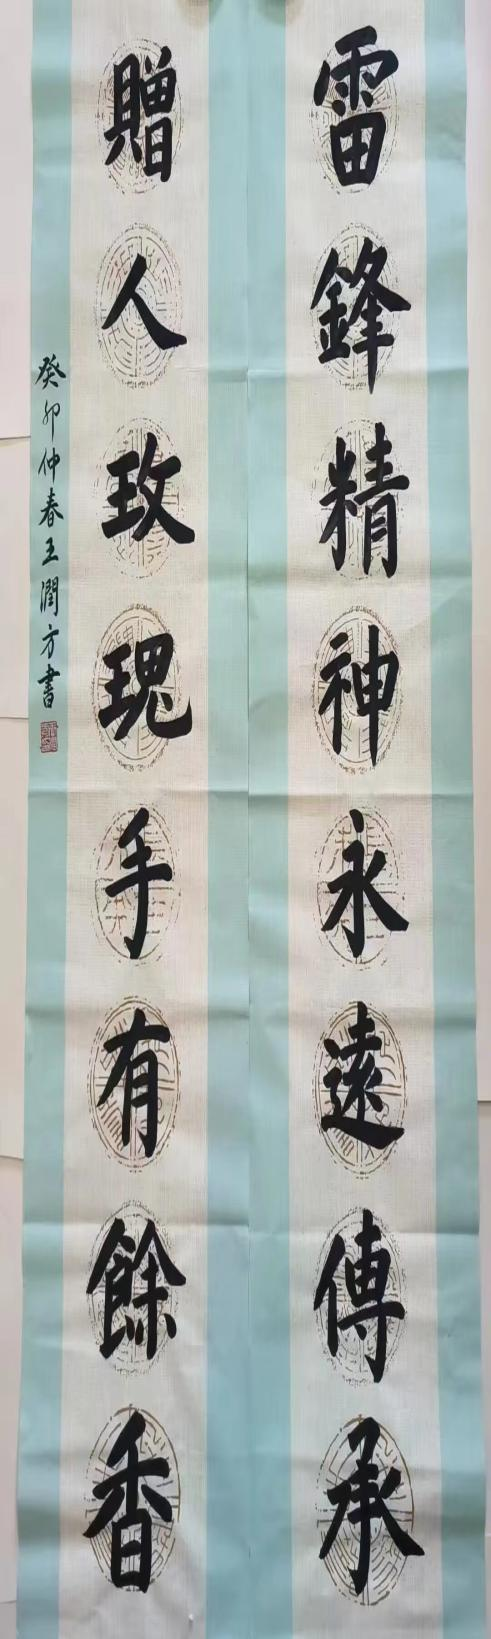 雷鋒精神永遠傳承
贈人玫瑰手有餘香
癸卯仲春王潤方書